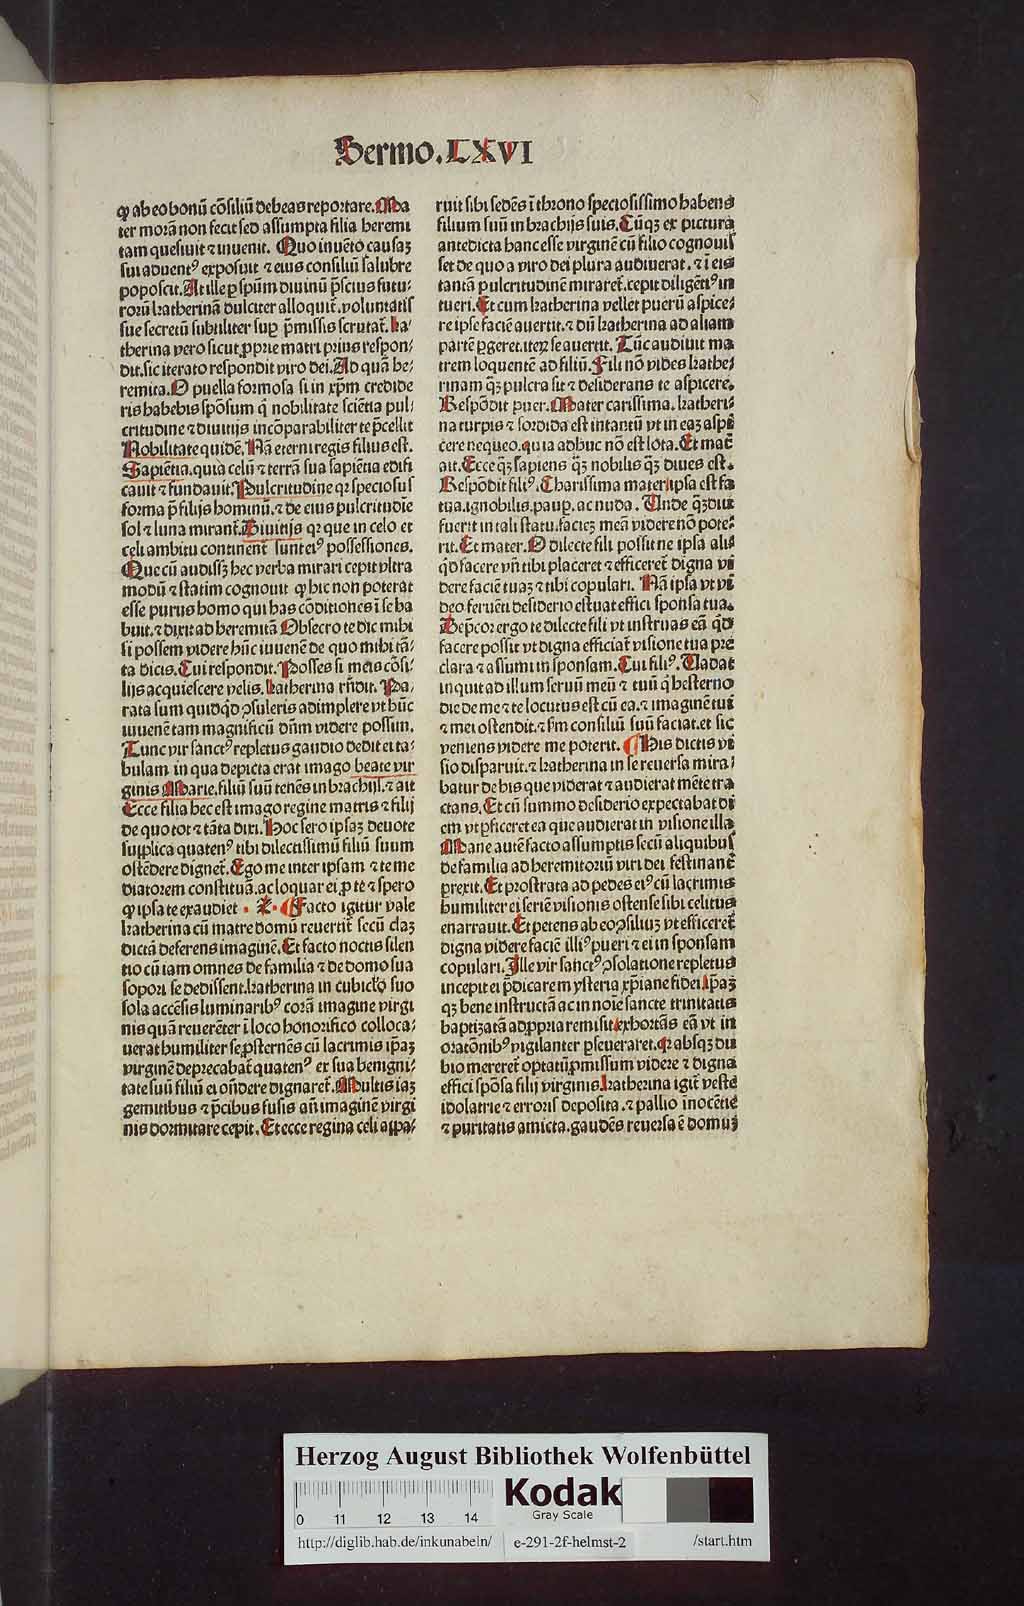 Sermo. LXVI
ꝙ ab eo bonū cōsiliū debeas reportare. Ma
ter morā non fecit sed assumpta filia heremi
tam quesiuit ⁊ inuenit. Quo inuēto causaꝫ
sui aduentꝰ exposuit ⁊ eius consiliū salubre
poposcit. At ille ꝑ spūm diuinū p̄scius futu⸗
rorū katherinā dulciter alloquit̄. voluntatis
sue secretū subtiliter suꝑ p̄missis scrutat̄. ka⸗
therina vero sicut ꝓprie matri prius respon⸗
dit. sic iterato respondit viro dei. Ad quā he⸗
remita. O puella formosa si in xp̄m credide
ris habebis spōsum q̄ nobilitate sciētia pul⸗
critudine ⁊ diuitijs incōparabiliter te p̄cellit
Nobilitate quidē. Nā eterni regis filius est.
Sapiētia. quia celū ⁊ terrā sua sapiētia edifi
cauit ⁊ fundauit. Pulcritudine qꝛ speciosus
forma p̄ filijs hominū. ⁊ de eius pulcritudīe
sol ⁊ luna mirant̄. Diuitijs qꝛ que in celo et
celi ambitu continent̄ sunt eiꝰ possessiones.
Que cū audisset hec verba mirari cepit vltra
modū ⁊ statim cognouit ꝙ hic non poterat
esse purus homo qui has cōditiones ī se ha
buit. ⁊ dixit ad heremitā Obsecro te dic mihi
si possem videre hūc iuuenē de quo mihi tā⸗
ta dicis. Cui respondit. Posses si meis cōsi⸗
lijs acquiescere velis. katherina rn̄dit. Pa⸗
rata sum quidq̄d ꝯsuleris adimplere vt hūc
iuuenē tam magnificū dn̄m videre possim.
Tunc vir sanctꝰ repletus gaudio dedit ei ta⸗
bulam in qua depicta erat imago beate vir
ginis Marie. filiū suū tenēs in brachijs. ⁊ ait
Ecce filia hec est imago regine matris ⁊ filij
de quo tot ⁊ tāta dixi. Hoc sero ipsaꝫ deuote
supplica quatenꝰ tibi dilectissimū filiū suum
ostēdere dignet̄. Ego me inter ipsam ⁊ te me
diatorem constituā. ac loquar ei ꝓ te ⁊ spero
ꝙ ipsa te exaudiet · ⁊· ¶ Facto igitur vale
katherina cū matre domū reuertit̄ secū ciaꝫ
dictā deferens imaginē. Et facto noctis silen
tio cū iam omnes de familia ⁊ de domo sua
sopori se dedissent. katherina in cubiclo suo
sola accēsis luminaribꝰ corā imagine virgi
nis quā reuerēter ī loco honorifico colloca⸗
uerat humiliter se ꝓsternēs cū lacrimis ip̄aꝫ
virginē deprecabat̄ quatenꝰ ex sua benigni⸗
tate suū filiū ei on̄dere dignaret̄. Multis iaꝫ
gemitibus ⁊ p̄cibus fusis an̄ imaginē virgi
nis dormitare cepit. Et ecce regina celi appa⸗
ruit sibi sedēs ī throno speciosissimo habens
filium suū in brachijs suis. Cūqꝫ ex pictura
antedicta hanc esse virginē cū filio cognouis
set de quo a viro dei plura audiuerat. ⁊ ī eis
tantā pulcritudinē miraret̄. cepit diligētiꝰ in
tueri. Et cum katherina vellet puerū aspice⸗
re ipse faciē auertit. ⁊ dū katherina ad aliam
partē ꝑgeret. iteꝝ se auertit. Tūc audiuit ma
trem loquentē ad filiū. Fili nō vides kathe⸗
rinam qꝫ pulcra sit ⁊ desiderans te aspicere.
Respōdit puer. Mater carissima. katheri⸗
na turpis ⁊ sordida est intantū vt in eaꝫ aspi
cere nequeo. quia adhuc nō est lota. Et mat̄
ait. Ecce qꝫ sapiens qꝫ nobilis qꝫ diues est.
Respōdit filiꝰ. Charissima mater ipsa est fa
tua. ignobilis. pauꝑ. ac nuda. Unde qꝫdiu
fuerit in tali statu. facieꝫ meā videre nō pote⸗
rit. Et mater. O dilecte fili possit ne ipsa ali⸗
q̄d facere vn̄ tibi placeret ⁊ efficeret̄ digna vi
dere faciē tuaꝫ ⁊ tibi copulari. Nā ipsa vt vi
deo feruēti desiderio estuat effici sponsa tua.
Dep̄cor ergo te dilecte fili vt instruas eā q̄d
facere possit vt digna efficiat̄ visione tua pre
clara ⁊ assumi in sponsam. Cui filiꝰ. Uadat
inquit ad illum seruū meū ⁊ tuū q̄ hesterno
die de me ⁊ te locutus est cū ea. ⁊ imaginē tui
⁊ mei ostendit. ⁊ s̄m consiliū suū faciat. et sic
veniens videre me poterit. ¶ His dictis vi
sio disparuit. ⁊ katherina in se reuersa mira⸗
batur de his que viderat ⁊ audierat mēte tra
ctans. Et cū summo desiderio expectabat di
em vt ꝑficeret ea que audierat in visione illa
Mane autē facto assumptis secū aliquibus
de familia ad heremitoriū viri dei festinant̄
prexit. Et prostrata ad pedes eiꝰ cū lacrimis
humiliter ei seriē visionis ostense sibi celitus
enarrauit. Et petens ab eo ꝯsiliuꝫ vt efficeret̄
digna videre faciē illiꝰ pueri ⁊ ei in sponsam
copulari. Ille vir sanctꝰ ꝯsolatione repletus
incepit ei p̄dicare mysteria xp̄iane fidei. Ip̄aꝫ
qꝫ bene instructā ac in noīe sancte trinitatis
baptizatā ad ꝓpria remisit exhortās eā vt in
oratōnibꝰ vigilanter ꝑseueraret. Qꝛ absqꝫ du
bio mereret̄ optatū ꝓmissum videre ⁊ digna
effici spōsa filij virginis. katherina igit̄ veste
idolatrie ⁊ erroris deposita. ⁊ pallio inocētie
⁊ puritatis amicta. gaudēs reuersa ē domuꝫ
Herzog August Bibliothek Wolfenbüttel
0 11 12 13 14
Kodak
Gray Scale
http://diglib.hab.de/inkunabeln/ e-291-2f-helmst-2 /start.htm